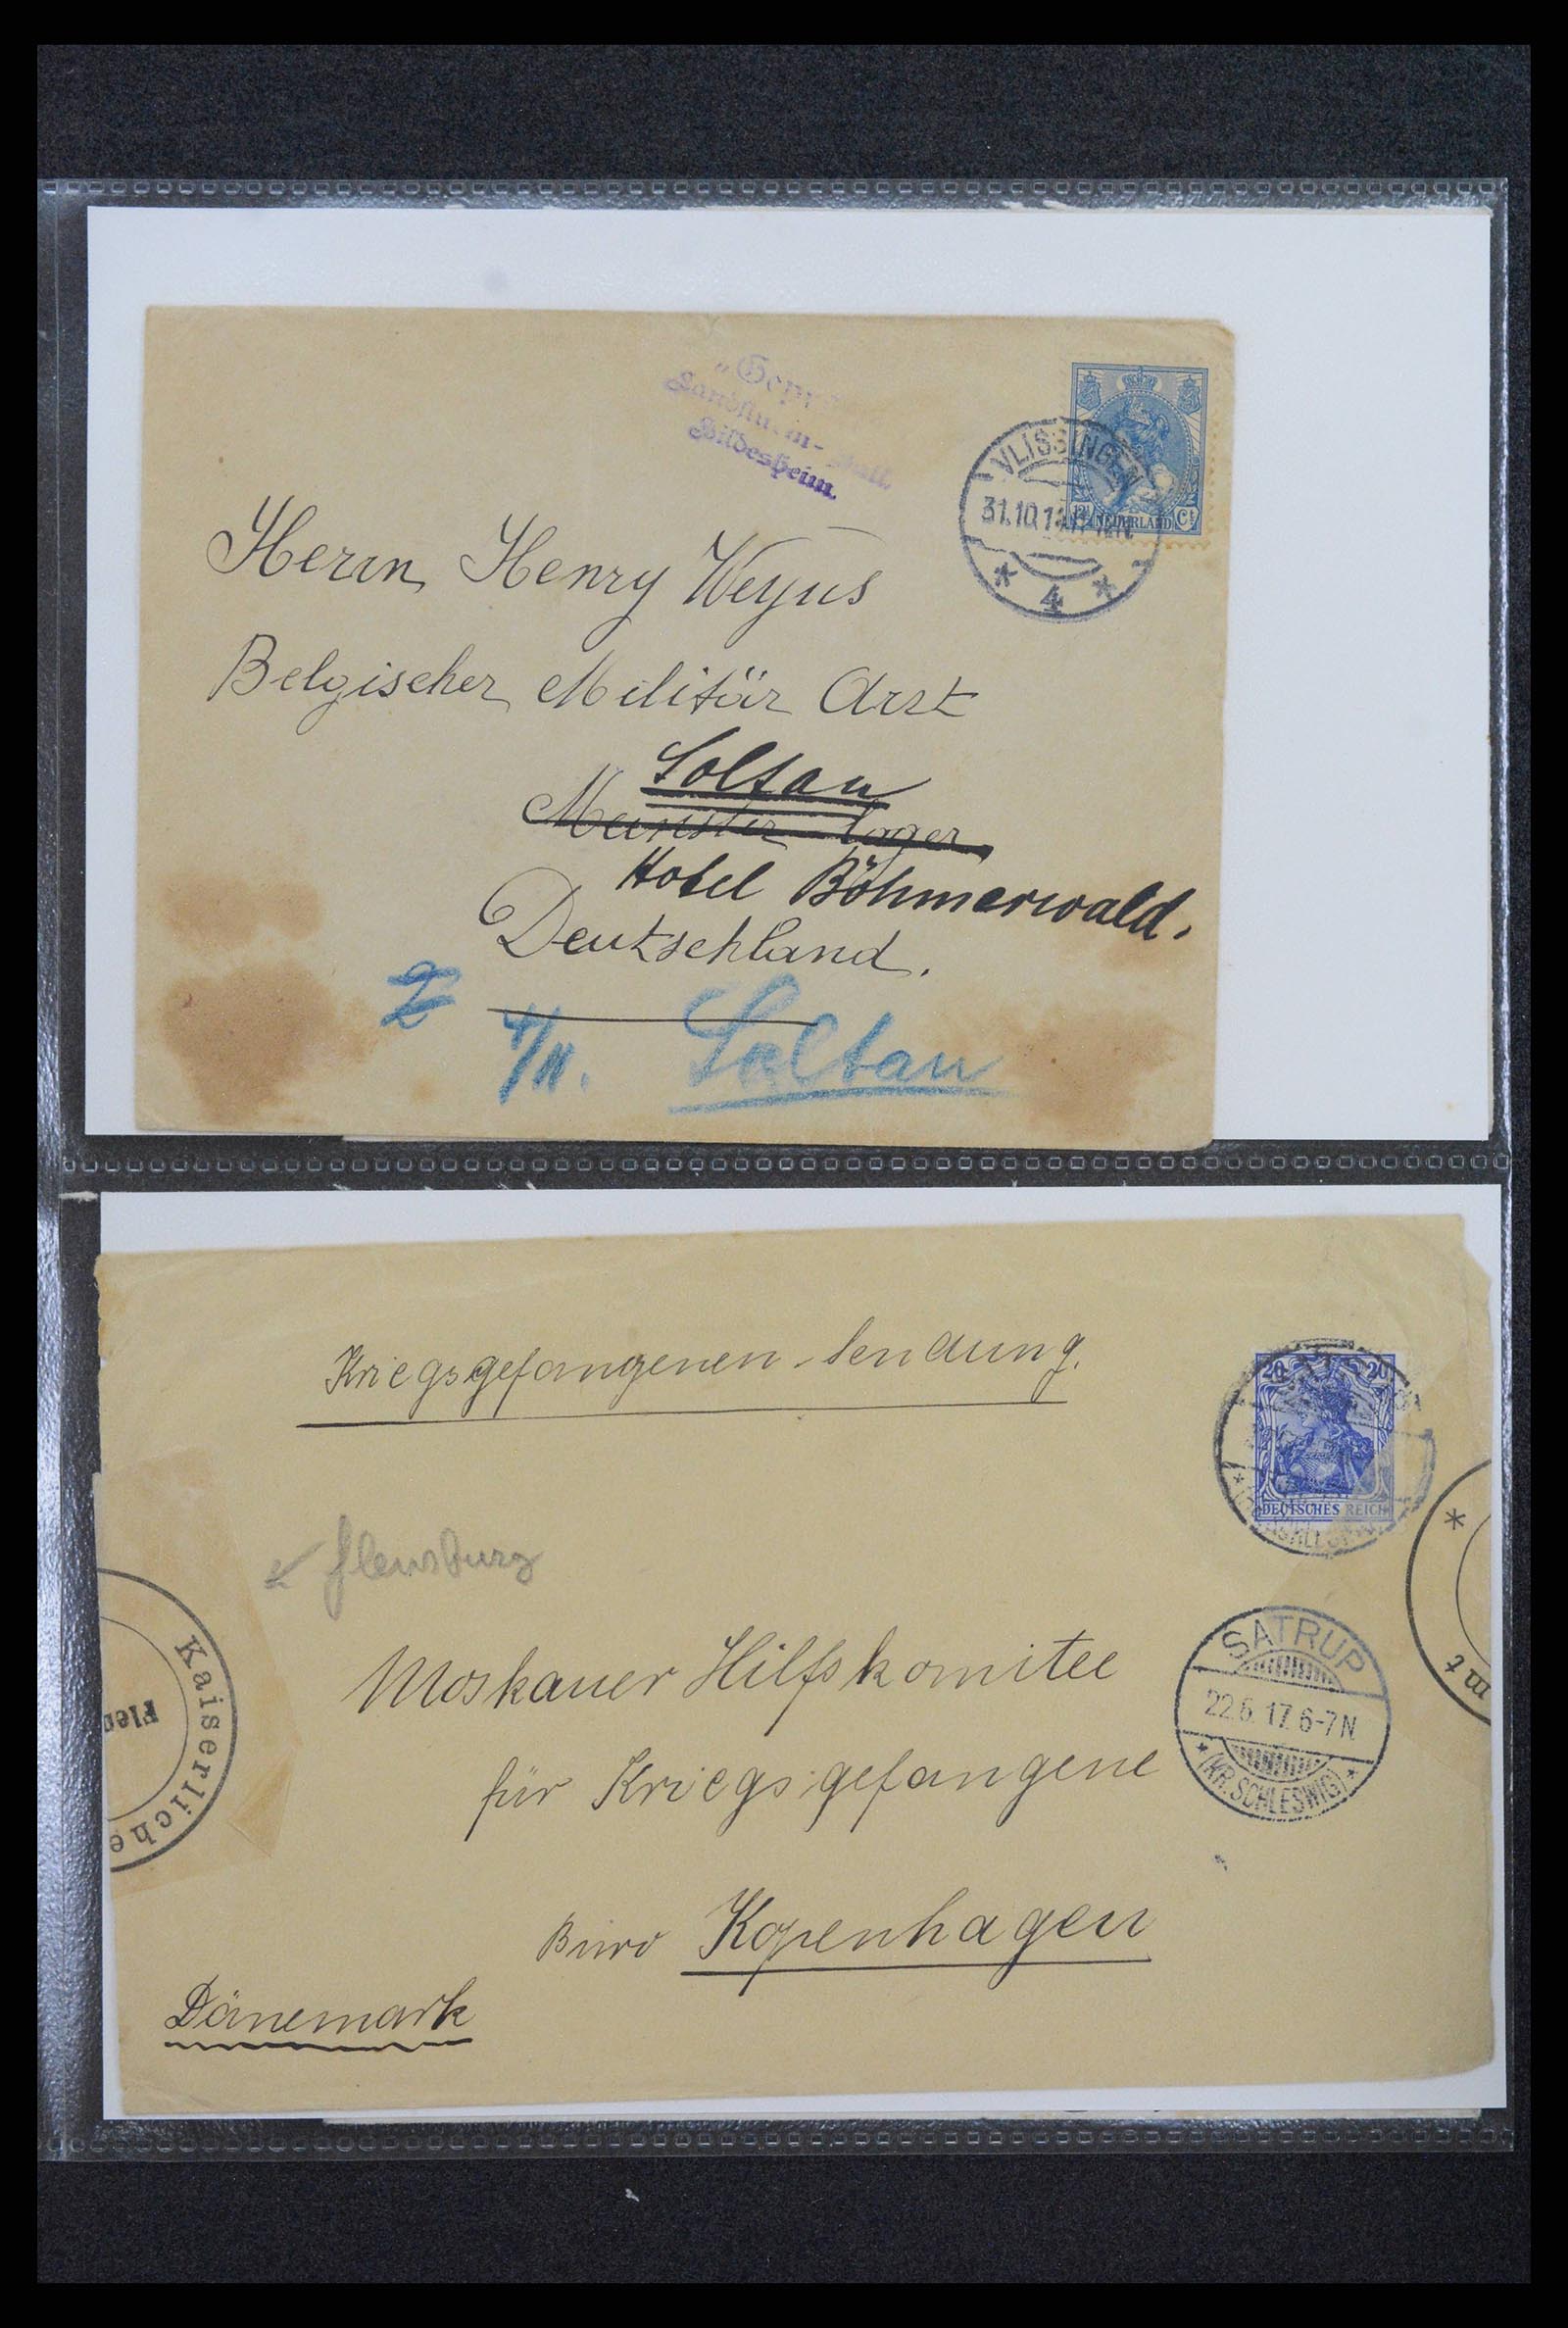 Hildesheim.
NEDERLAND Ct
VLISSINGEN
31.10.1
4
Herrn Henry Weyns
Belgischer Militär Arzt
Soltau
Munster Lager
Hotel Böhmerwald.
Deutschland.
Z
4/11. Soltau
Kriegsgefangenen-Sendung.
20 20
DEUTSCHES REICH
Flensburg
Kaiserliche
Flen
mt
SATRUP
22.6.17.6-7N.
(KR.SCHLESWIG)
Moskauer Hilfskomitee
für Kriegsgefangene
Büro Kopenhagen
Dänemark